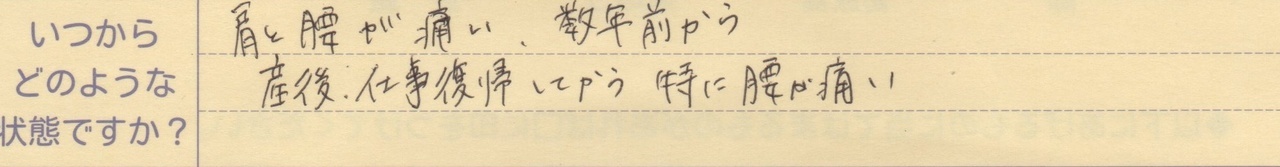 いつから
どのような
状態ですか？
肩と腰が痛い、数年前から
産後、仕事復帰してから 特に腰が痛い